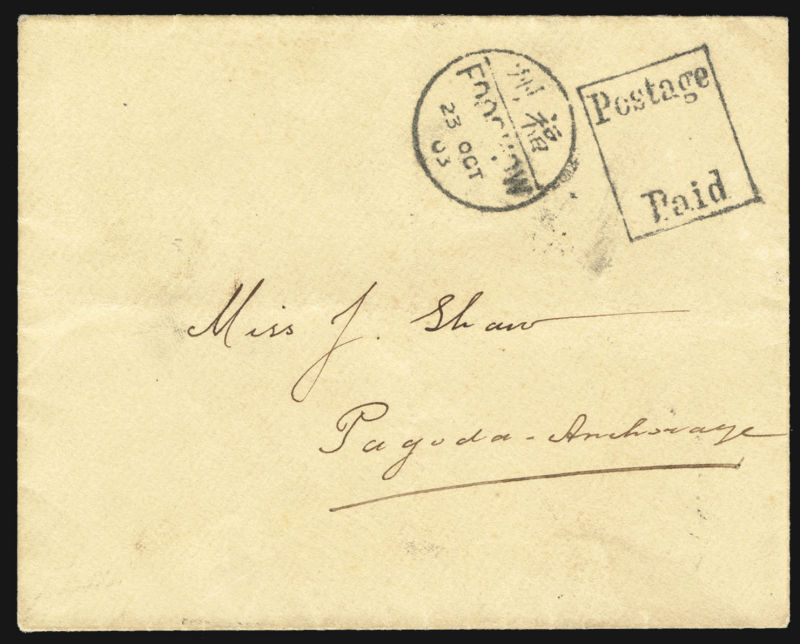 州福
FOOCHOW
23 OCT
03
Postage
Paid
Miss J. Shaw
Pagoda-Anchorage